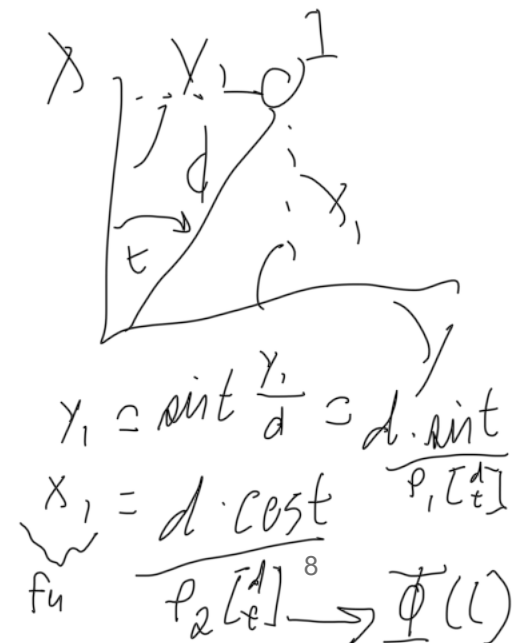 X
Y₁
1
d
t
X₁
Y
Y₁ = sin t Y₁/d = d·sin t
P₁[d t]
X₁ = d·cos t
8
P₂[d t] → Φ(